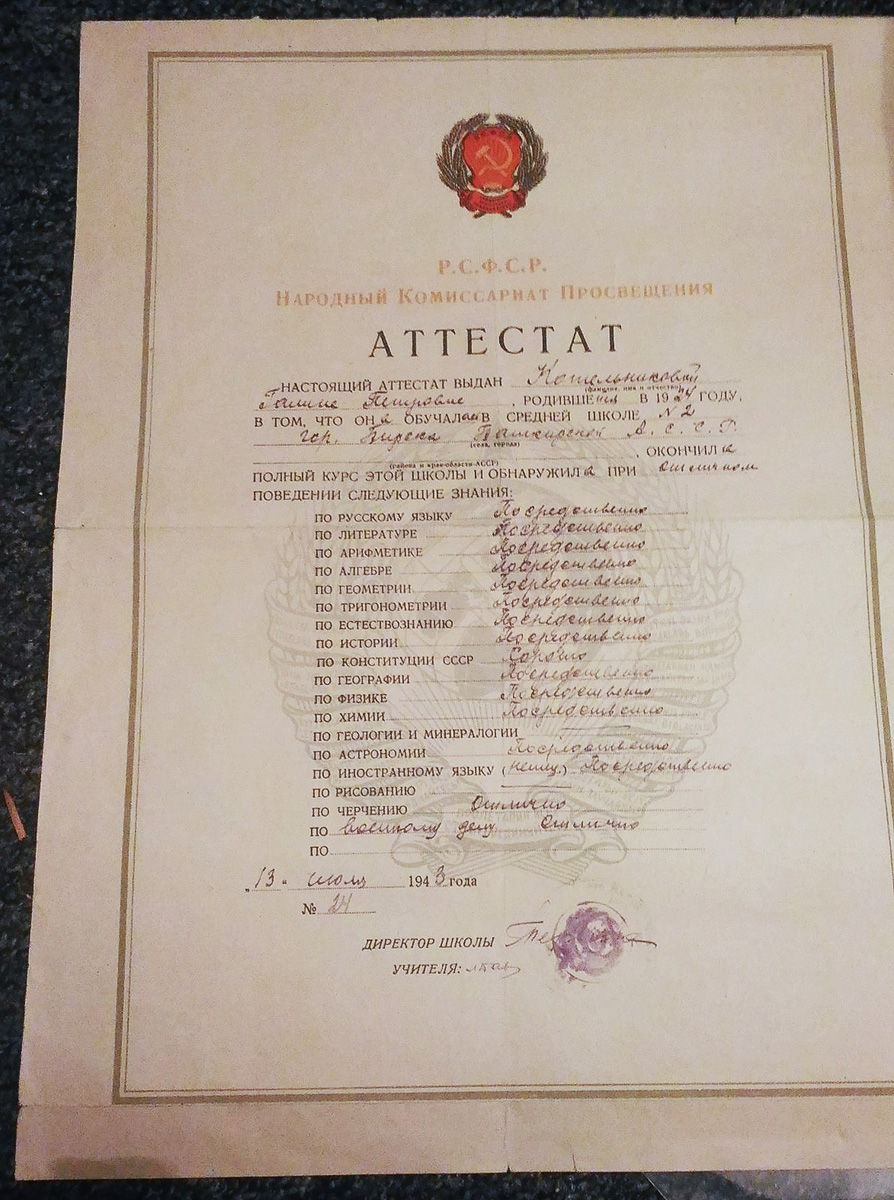 Р.С.Ф.С.Р.
Народный Комиссариат Просвещения
АТТЕСТАТ
НАСТОЯЩИЙ АТТЕСТАТ ВЫДАН Котельниковой
(фамилия, имя и отчество)
Галине Петровне, РОДИВШЕЙСЯ В 1924 ГОДУ,
В ТОМ, ЧТО ОНА ОБУЧАЛАСЬ В СРЕДНЕЙ ШКОЛЕ №2
гор. Бирска Башкирской А.С.С.Р.
(села, города)
, ОКОНЧИЛА
(района и края-области-АССР)
ПОЛНЫЙ КУРС ЭТОЙ ШКОЛЫ И ОБНАРУЖИЛА ПРИ отличном
ПОВЕДЕНИИ СЛЕДУЮЩИЕ ЗНАНИЯ:
ПО РУССКОМУ ЯЗЫКУ Посредственно
ПО ЛИТЕРАТУРЕ Посредственно
ПО АРИФМЕТИКЕ Посредственно
ПО АЛГЕБРЕ Посредственно
ПО ГЕОМЕТРИИ Посредственно
ПО ТРИГОНОМЕТРИИ Посредственно
ПО ЕСТЕСТВОЗНАНИЮ Посредственно
ПО ИСТОРИИ Посредственно
ПО КОНСТИТУЦИИ СССР Хорошо
ПО ГЕОГРАФИИ Посредственно
ПО ФИЗИКЕ Посредственно
ПО ХИМИИ Посредственно
ПО ГЕОЛОГИИ И МИНЕРАЛОГИИ
ПО АСТРОНОМИИ Посредственно
ПО ИНОСТРАННОМУ ЯЗЫКУ (немец.) Посредственно
ПО РИСОВАНИЮ
ПО ЧЕРЧЕНИЮ Отлично
ПО военному делу Отлично
ПО
„13" июля 1943 года
№ 24
ДИРЕКТОР ШКОЛЫ
УЧИТЕЛЯ: